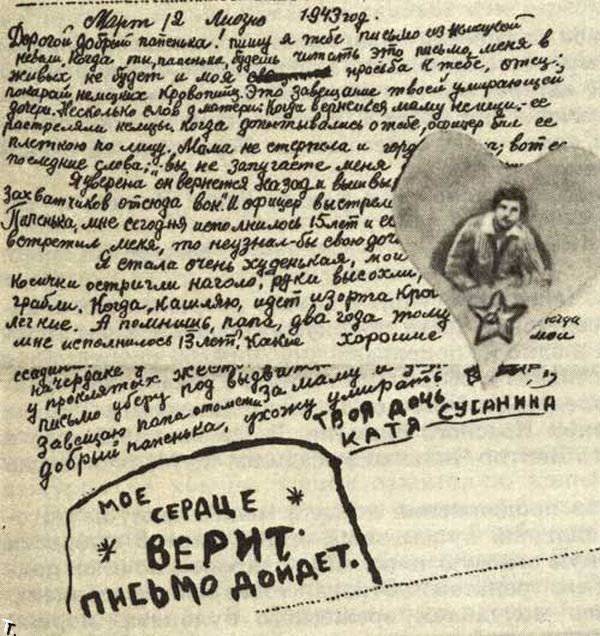 Март 12 Лиозно 1943 год.
Дорогой добрый папенька! пишу я тебе письмо из немецкой
неволи. Когда ты, папенька, будешь читать это письмо, меня в
живых не будет и моя просьба к тебе, отец:
покарай немецких кровопийц. Это завещание твоей умирающей
дочери. Несколько слов о матери. Когда вернешься маму не ищи. ее
растреляли немцы. Когда допытывались о тебе, офицер бил ее
плеткою по лицу. Мама не стерпела и гордо вот ее
последние слова: "вы не запугаете меня
Я уверена он вернется назад и вышвы
захватчиков отсюда вон. И офицер выстрел
Папенька, мне сегодня исполнилось 15 лет и ес
встретил меня, то неузнал-бы свою доч
Я стала очень худенькая, мои
Косички остригли наголо, руки высохли,
грабли. Когда кашляю, идет изо рта кро
легкие. А помнишь, папа, два года тому когда
мне исполнилось 13 лет. Какие хорошие мои
на чердаке
у проклятых жест
письмо уберу под
Завещаю папа отомсти за маму и
добрый папенька, ухожу умирать
ТВОЯ ДОЧЬ
КАТЯ СУСАНИНА
МОЕ
СЕРДЦЕ
ВЕРИТ.
ПИСЬМО ДОЙДЕТ.
Г.